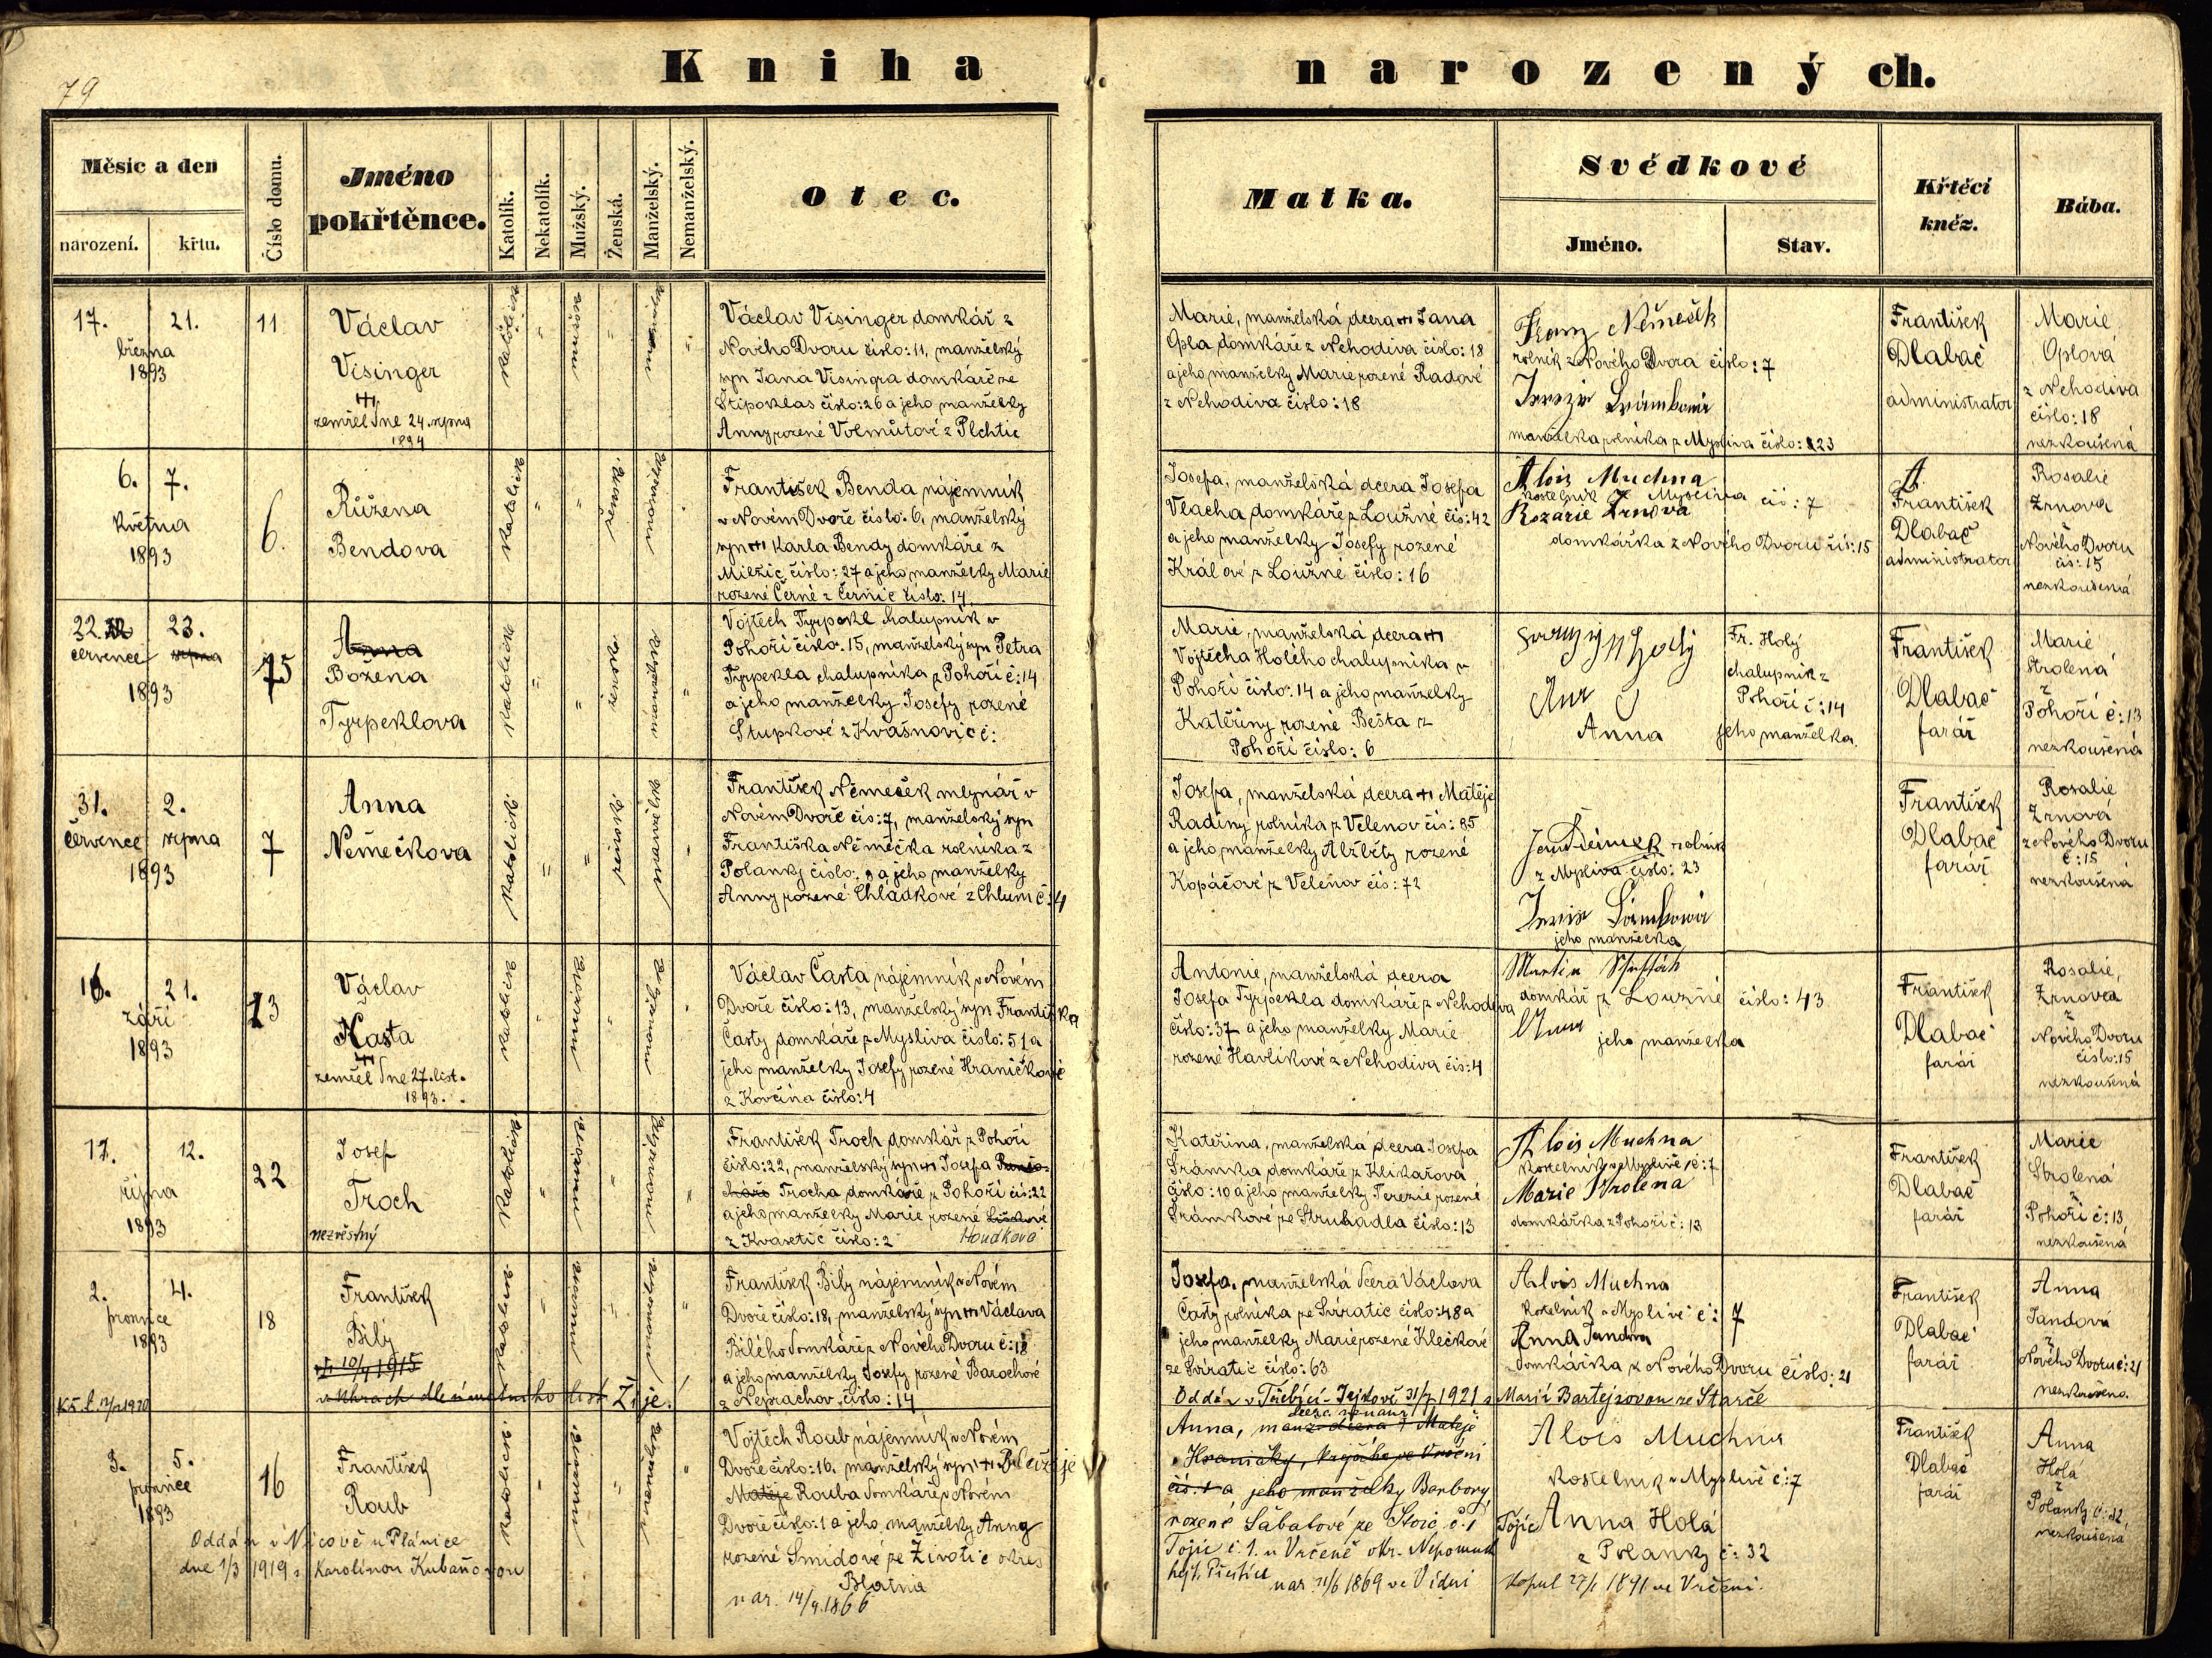 79
Kniha narozených.
Měsíc a den
narození.
křtu.
Číslo domu.
Jméno
pokřtěnce.
Katolík.
Nekatolík.
Mužský.
Ženská.
Manželský.
Nemanželský.
Otec.
Matka.
Svědkové
Jméno.
Stav.
Křtěcí
kněz.
Bába.
17. 21.
března
1893
11
Václav
Visinger
zemřel dne 24. srpna
1894
Václav Visinger domkář z
Nového Dvoru číslo: 11, manželský
syn Jana Visingra domkáře ze
Štipoklas číslo: 26 a jeho manželky
Anny rozené Volmutové z Plchtic
Marie, manželská dcera Jana
Opla domkáře z Nehodiva číslo: 18
a jeho manželky Marie rozené Radové
z Nehodiva číslo: 18
Franz Němeček
rolník z Nového Dvora číslo: 7
manželka rolníka z Mysliva číslo: 23
František
Dlabač
administrator
Marie
Oplová
z Nehodiva
číslo: 18
nezkoušená
6. 7.
května
1893
6.
Růžena
Bendova
František Benda nájemník
v Novém Dvoře číslo: 6, manželský
syn Karla Bendy domkáře z
Milčic číslo: 27 a jeho manželky Marie
rozené Černé z Černic číslo: 14
Josefa, manželská dcera Josefa
Vlacha domkáře z Loužné čís: 42
a jeho manželky Josefy rozené
Králové z Loužné číslo: 16
Alois Muchna
kostelník z Mysliva čís: 7
Rozárie Zrnova
domkářka z Nového Dvoru čís: 15
František
Dlabač
administrator
Rosalie
Zrnova
Nového Dvoru
čís: 15
nezkoušená
22. 23.
července srpna
1893
15
Anna
Božena
Tyrpeklova
Vojtěch Tyrpekl chalupník v
Pohoří číslo: 15, manželský syn Petra
Tyrpekla chalupníka z Pohoří č: 14
a jeho manželky Josefy rozené
Stupkové z Kvášňovic č:
Marie, manželská dcera
Vojtěcha Holého chalupníka v
Pohoří číslo: 14 a jeho manželky
Kateřiny rozené Bešta z
Pohoří číslo: 6
Fr. Holý
chalupník z
Pohoří č: 14
Anna jeho manželka.
František
Dlabač
farář
Marie
Strolená
z
Pohoří č: 13
nezkoušená
31. 2.
července srpna
1893
7
Anna
Němečkova
František Němeček mlynář v
Novém Dvoře čís: 7, manželský syn
Františka Němečka rolníka z
Polanky číslo: 9 a jeho manželky
Anny rozené Chládkové z Chlum č: 4
Josefa, manželská dcera Matěje
Radiny rolníka z Velenov čís: 85
a jeho manželky Alžběty rozené
Kopáčové z Velenov čís: 72
rolník
z Mysliva číslo: 23
jeho manželka
František
Dlabač
farář
Rosalie
Zrnová
z Nového Dvoru
č: 15
nezkoušená
16. 21.
září
1893
13
Václav
Časta
zemřel dne 27. list.
1893.
Václav Časta nájemník v Novém
Dvoře číslo: 13, manželský syn Františka
Časty domkáře z Mysliva číslo: 51 a
jeho manželky Josefy rozené Hraničkové
z Kovčína číslo: 4
Antonie, manželská dcera
Josefa Tyrpekla domkáře z Nehodiva
číslo: 37 a jeho manželky Marie
rozené Havlíkové z Nehodiva čís: 4
Martin
domkář z Loužné číslo: 43
Anna jeho manželka
František
Dlabač
farář
Rosalie,
Zrnová
z
Nového Dvoru
číslo: 15
nezkoušená
11. 12.
října
1893
22
Josef
Troch
nezvěstný
František Troch domkář z Pohoří
číslo: 22, manželský syn Josefa
Trocha domkáře z Pohoří čís: 22
a jeho manželky Marie rozené Liškové
z Kvasetic číslo: 2 Houdkové
Kateřina, manželská dcera Josefa
Šrámka domkáře z Klikařova
číslo: 10 a jeho manželky Terezie rozené
Šrámkové ze Struhadla číslo: 13
Alois Muchna
kostelník v Myslivě č: 7
Marie Strolena
domkářka z Pohoří č: 13
František
Dlabač
farář
Marie
Strolená
z
Pohoří č: 13,
nezkoušená
2. 4.
prosince
1893
18
František
Bílý
10/4 1915
Žije!
František Bílý nájemník v Novém
Dvoře číslo: 18, manželský syn Václava
Bílého domkáře z Nového Dvoru č: 18
a jeho manželky Josefy rozené Barochové
z Neprachov číslo: 14
Josefa, manželská dcera Václava
Časty rolníka ze Svératic číslo: 48 a
jeho manželky Marie rozené Klečkové
ze Svératic číslo: 63
Oddán v Třebíči-Jejkově 31/7 1921 s Marií Bartejsovou ze Starče
Alois Muchna
kostelník v Myslivě č: 7
Anna Jandova
domkářka z Nového Dvoru číslo: 21
František
Dlabač
farář
Anna
Jandová
z
Nového Dvoru č: 21
nezkoušena.
3. 5.
prosince
1893
16
František
Roub
Oddán v Nicově u Plánice
dne 1/3 1919 s Karolinou Kubaňovou
Vojtěch Roub nájemník v Novém
Dvoře číslo: 16, manželský syn Blažeje
Matěje Rouba domkáře v Novém
Dvoře číslo: 1 a jeho manželky Anny
rozené Šmidové ze Životic okres
Blatná
nar. 14/4 1866
dcera nemanž.
Anna, manž. dcera Matěje
Hraničky, krejčího ve Vrčeni
čís. 1 a jeho manželky Barbory
rozené Šabatové ze Stoic č. 1 Tojic
Tojic č. 1. u Vrčeně okr. Nepomuk
hejt. Přeštice
nar. 11/6 1869 ve Vídni
Alois Muchna
kostelník v Myslivě č: 7
Anna Holá
z Polanky č: 32
kopul 27/1 1891 ve Vrčeni.
František
Dlabač
farář
Anna
Holá
z
Polanky č: 32,
nezkoušená